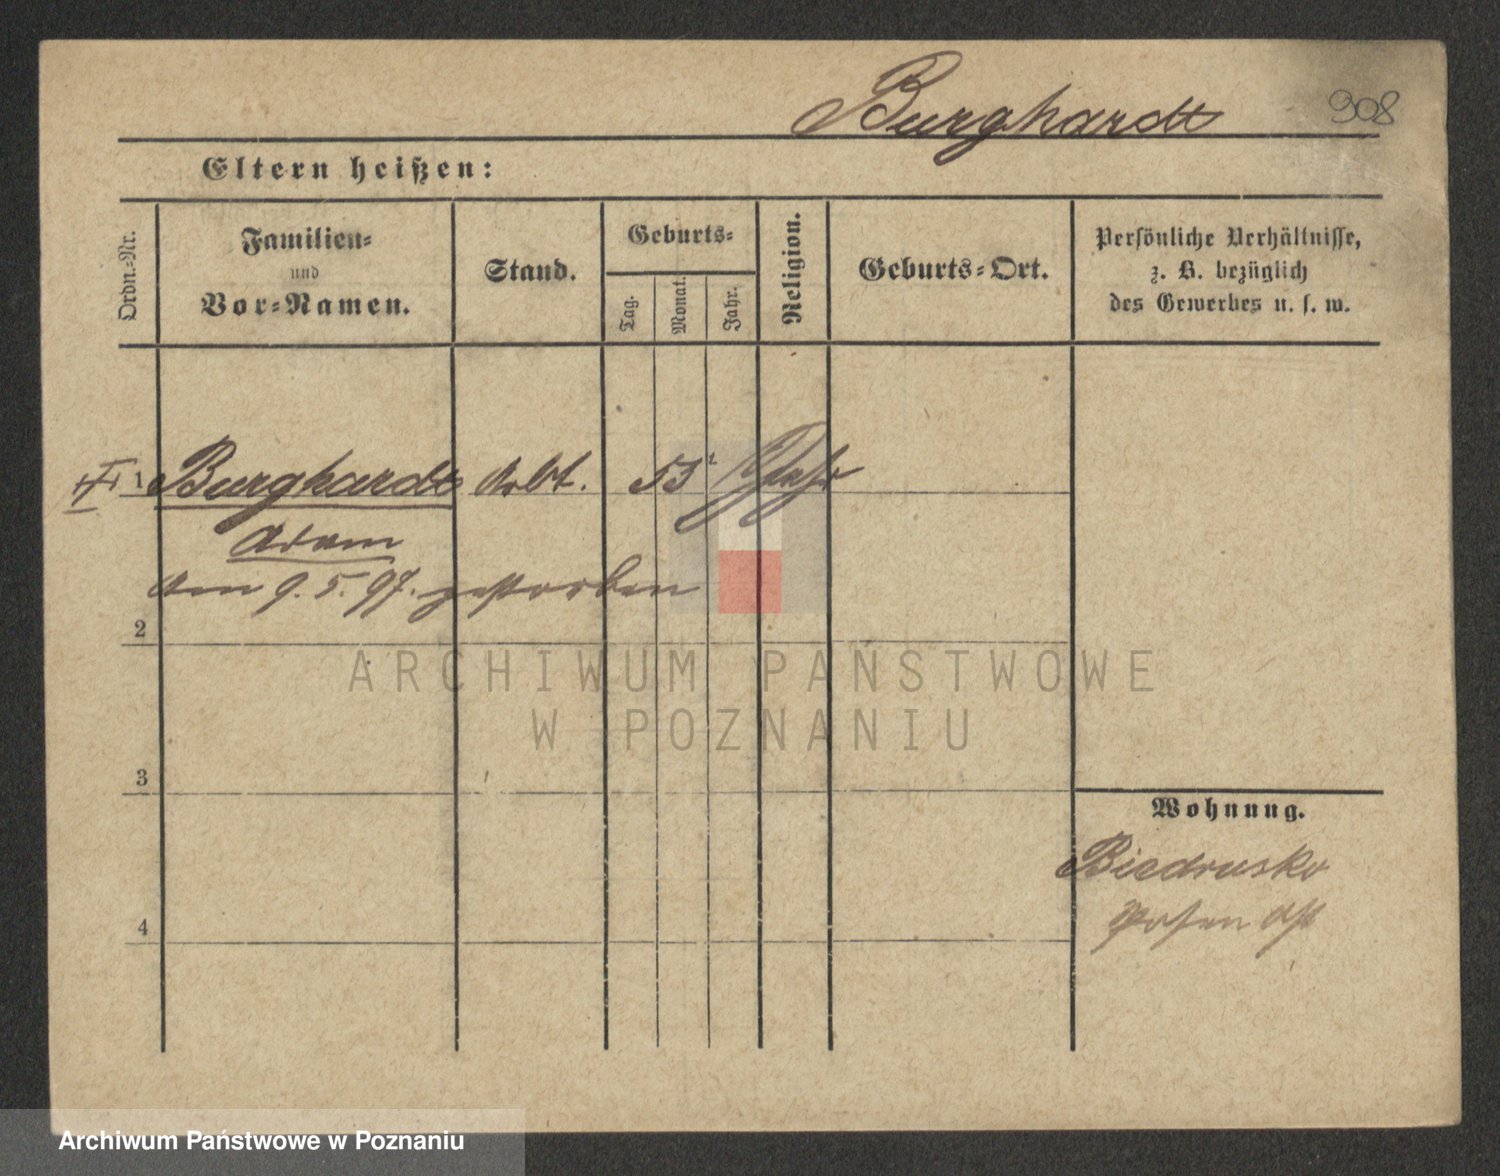 Burghardt 908
Eltern heißen:
Ordn.-Nr.
Familien-
und
Vor-Namen.
Stand.
Geburts-
Tag.
Monat.
Jahr.
Religion.
Geburts-Ort.
Persönliche Verhältnisse,
z. B. bezüglich
des Gewerbes u. s. w.
1 Burghardt Arbt. 53 Jahr
Adam
am 9. 5. 97. gestorben
2
3
4
Wohnung.
Biedrusko
Posen
ARCHIWUM PAŃSTWOWE
W POZNANIU
Archiwum Państwowe w Poznaniu